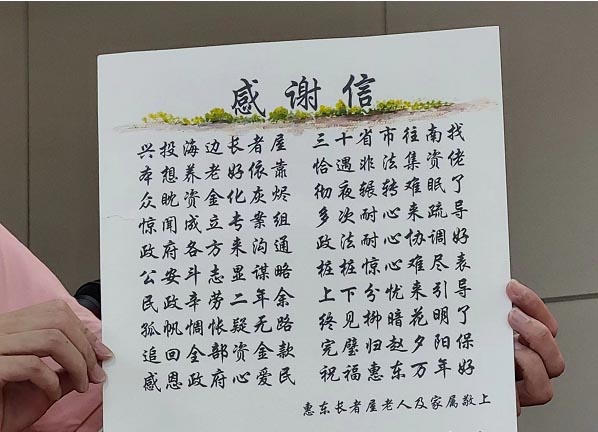 感谢信
兴投海边长者屋 三十省市往南找
本想养老好依靠 恰遇非法集资佬
众 资金化灰烬 彻夜辗转难眠了
惊闻成立专案组 多次耐心来疏导
政府各方来沟通 政法耐心协调好
公安斗志显谋略 桩桩惊心难尽表
民政辛劳二年余 上下分忧来引导
孤帆惆怅疑无路 终见柳暗花明了
追回全部资金款 完璧归赵夕阳保
感恩政府心爱民 祝福惠东万年好
惠东长者屋老人及家属敬上